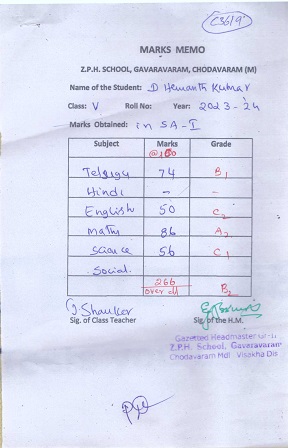 C3619
MARKS MEMO
Z.P.H. SCHOOL, GAVARAVARAM, CHODAVARAM (M)
Name of the Student: D Hemanth Kumar
Class: V Roll No: Year: 2023-24
Marks Obtained: in SA-I
Subject Marks Grade
@100
Telugu 74 B1
Hindi - -
English 50 C2
maths 86 A2
science 56 C1
Social
266
over all B2
J. Shankar
Sig. of Class Teacher Sig. of the H.M.
Gazetted Headmaster Gr-II
Z.P.H. School, Gavaravaram
Chodavaram Mdl Visakha Dis